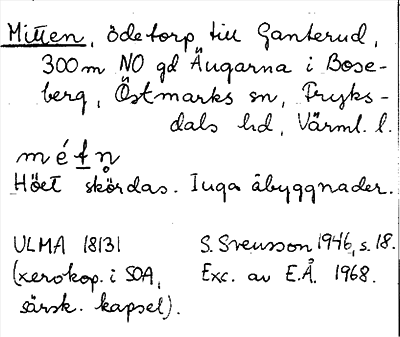 Mitten, ödetorp till Ganterud,
300 m NO gd Ängarna i Bose-
berg, Östmarks sn, Fryks-
dals hd, Värml. l.
métn̥
Höet skördas. Inga åbyggnader.
ULMA 18131
(xerokop. i SOA,
särsk. kapsel).
S. Svensson 1946, s. 18.
Exc. av E.Å. 1968.